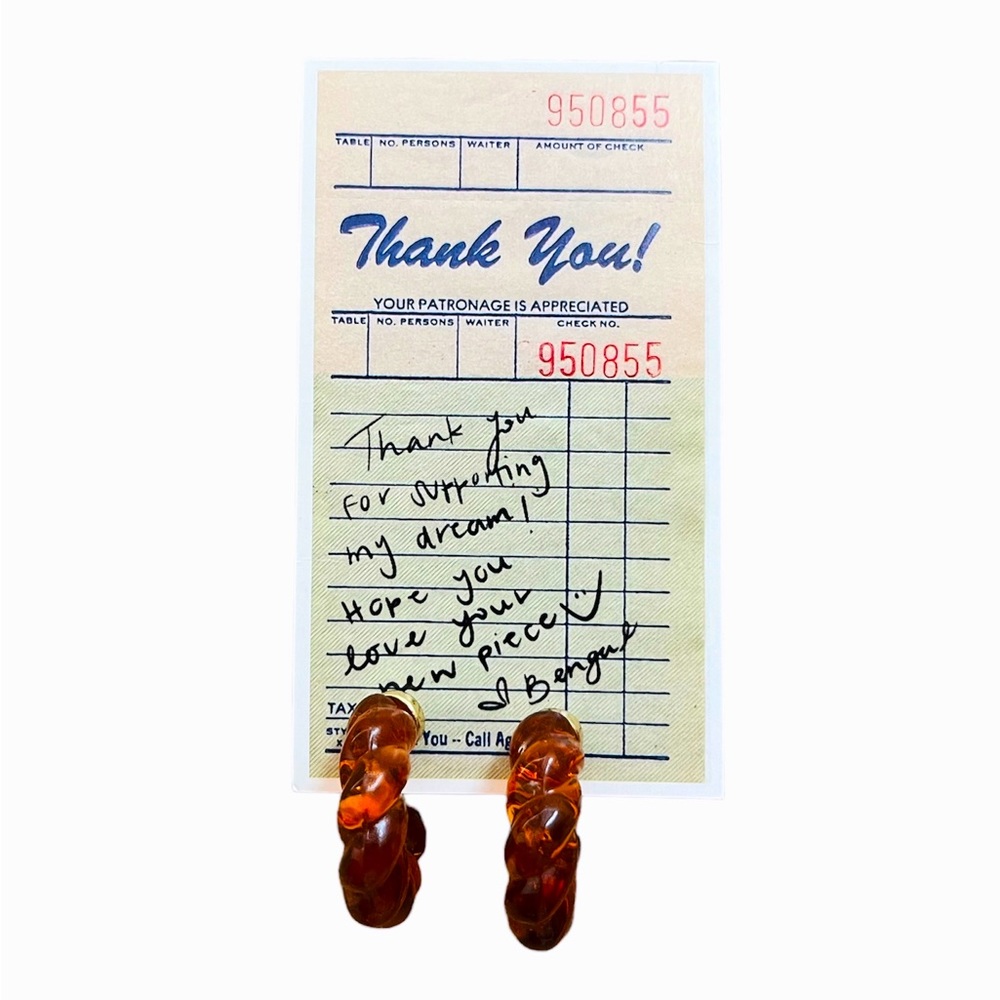 950855
TABLE NO. PERSONS WAITER AMOUNT OF CHECK
Thank You!
YOUR PATRONAGE IS APPRECIATED
TABLE NO. PERSONS WAITER CHECK NO.
950855
Thank you
For supporting
my dream!
Hope you
love your
new piece
Bengul
TAX
You -- Call